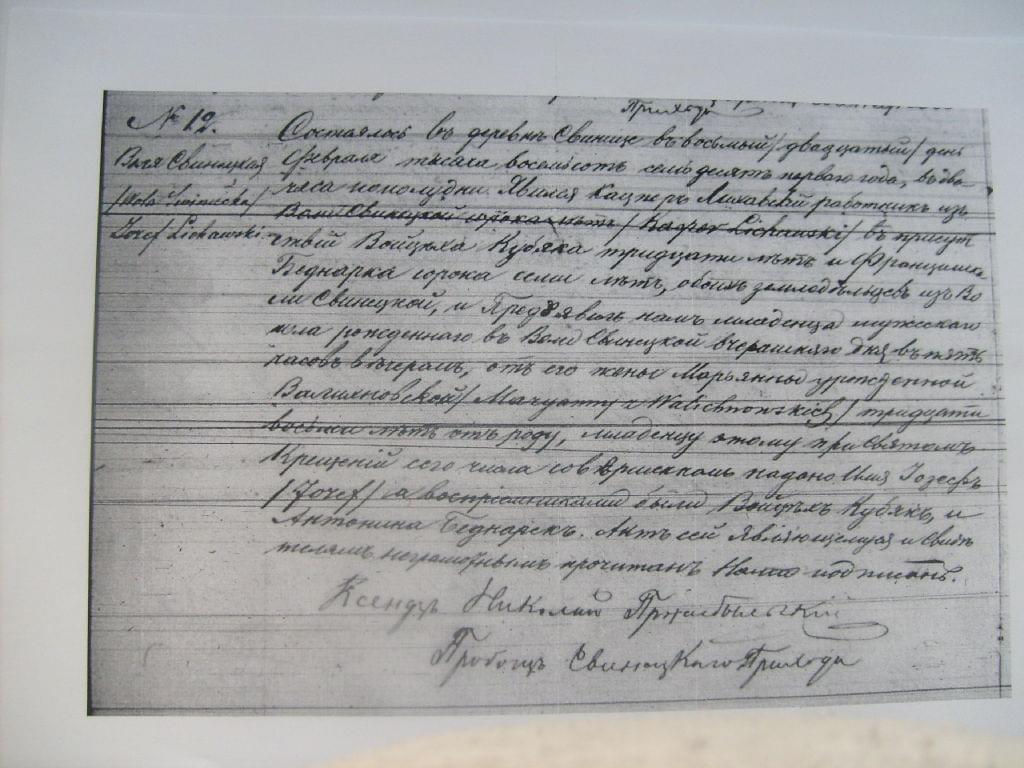 Прихода
№ 12.
Воля Свинецкая
/Wola Swiniecka/
Jozef Lichawski.
Состоялось въ деревнѣ Свинице въ восьмый /двадцатый/ день
Февраля тысяча восемьсотъ семьдесятъ перваго года, въ два
часа пополудни. Явился Кацперъ Лихавскій работникъ изъ
Воли Свинецкой сорока лѣтъ /Kacper Lichawski/ въ присут
ствій Войцѣха Кубяка тридцати лѣтъ и Францишка
Беднарка сорока семи лѣтъ, обоихъ земледѣльцевъ изъ Во
ли Свинецкой, и предъявилъ намъ младенца мужескаго
пола рожденнаго въ Воли Свинецкой вчерашняго дня въ пять
часовъ вечеромъ, отъ его жены Марьянны урожденной
Валихновской /Maryanny z Walichnowskich/ тридцати
восьми лѣтъ отъ роду, младенцу этому при Святомъ
Крещеніи сего числа совершенномъ надано имя Іозефъ
/Jozef/ а воспріемниками были Войцѣхъ Кубякъ, и
Антонина Беднарекъ. Актъ сей являющемуся и Свидѣ
телямъ неграмотнымъ прочитанъ Нами подписанъ.
Ксендзъ Николай
Пробощъ Свинецкаго Прихода